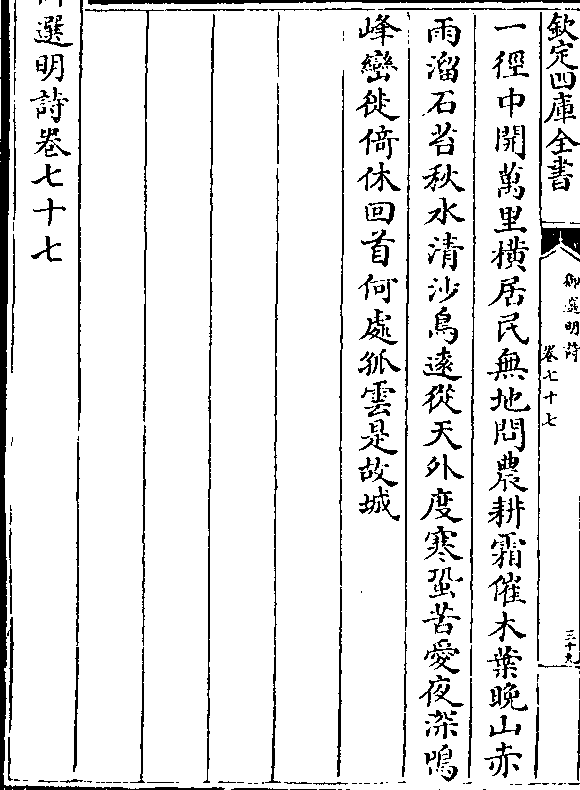 欽定四庫全書
御選明詩
卷七十七
三十九
一徑中開萬里橫居民無地問農耕霜催木葉晩山赤
雨溜石苔秋水清沙鳥遠從天外度寒蛩苦愛夜深鳴
峰巒徙倚休回首何處孤雲是故城
選明詩卷七十七